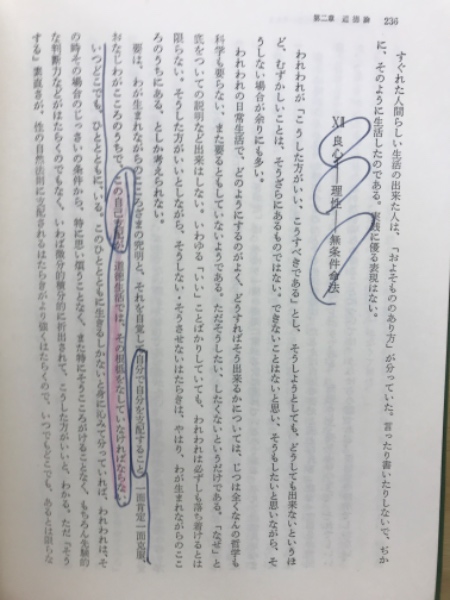 第二章 道徳論 236
すぐれた人間らしい生活の出来た人は、「およそもののあり方」が分っていた。言ったり書いたりしないで、ぢか
に、そのように生活したのである。実践に優る表現はない。
XII 良心――理性――無条件命法
われわれが「こうした方がいい、こうすべきである」とし、そうしようとしても、どうしても出来ないというほ
ど、むずかしいことは、そうざらにあるものではない。できないことはないと思い、そうもしたいと思いながら、そ
うしない場合が余りにも多い。
われわれの日常生活で、どのようにするのがよく、どうすればそう出来るかについては、じつは全くなんの哲学も
科学も要らない、また要るともしていないようである。ただそうしたい、したくないというだけである。「なぜ」と
底をついての説明など出来はしない。いわゆる「いい」ことばかりしていても、われわれは必ずしも落ち着けるとは
限らない。そうした方がいいとしながら、そうしない・そうさせないはたらきは、やはり、わが生まれながらのここ
ろのうちにある、としか考えられない。
要は、わが生まれながらのこころざまの究明と、それを自覚して自分で自分を支配すること、一面肯定一面克服、
おなじわがこころのうちで、この自己支配が、道徳生活では、その根柢をなしていなければならない。
いつどこでも、ひとととともに、いる。このひととともに生きるしかないと身に沁みて分っていれば、われわれは、そ
の時その場合のじっさいの条件から、特に思い煩うことなく、また特にそうこころがけることなく、もちろん先験的
な判断力などがはたらくのでもなく、いわば微分的積分的に析出されて、こうした方がいいと、わかる。ただ「そう
する」素直さが、性の自然法則に支配されるはたらきがより強くはたらくので、いつでもどこでも、あるとは限らな